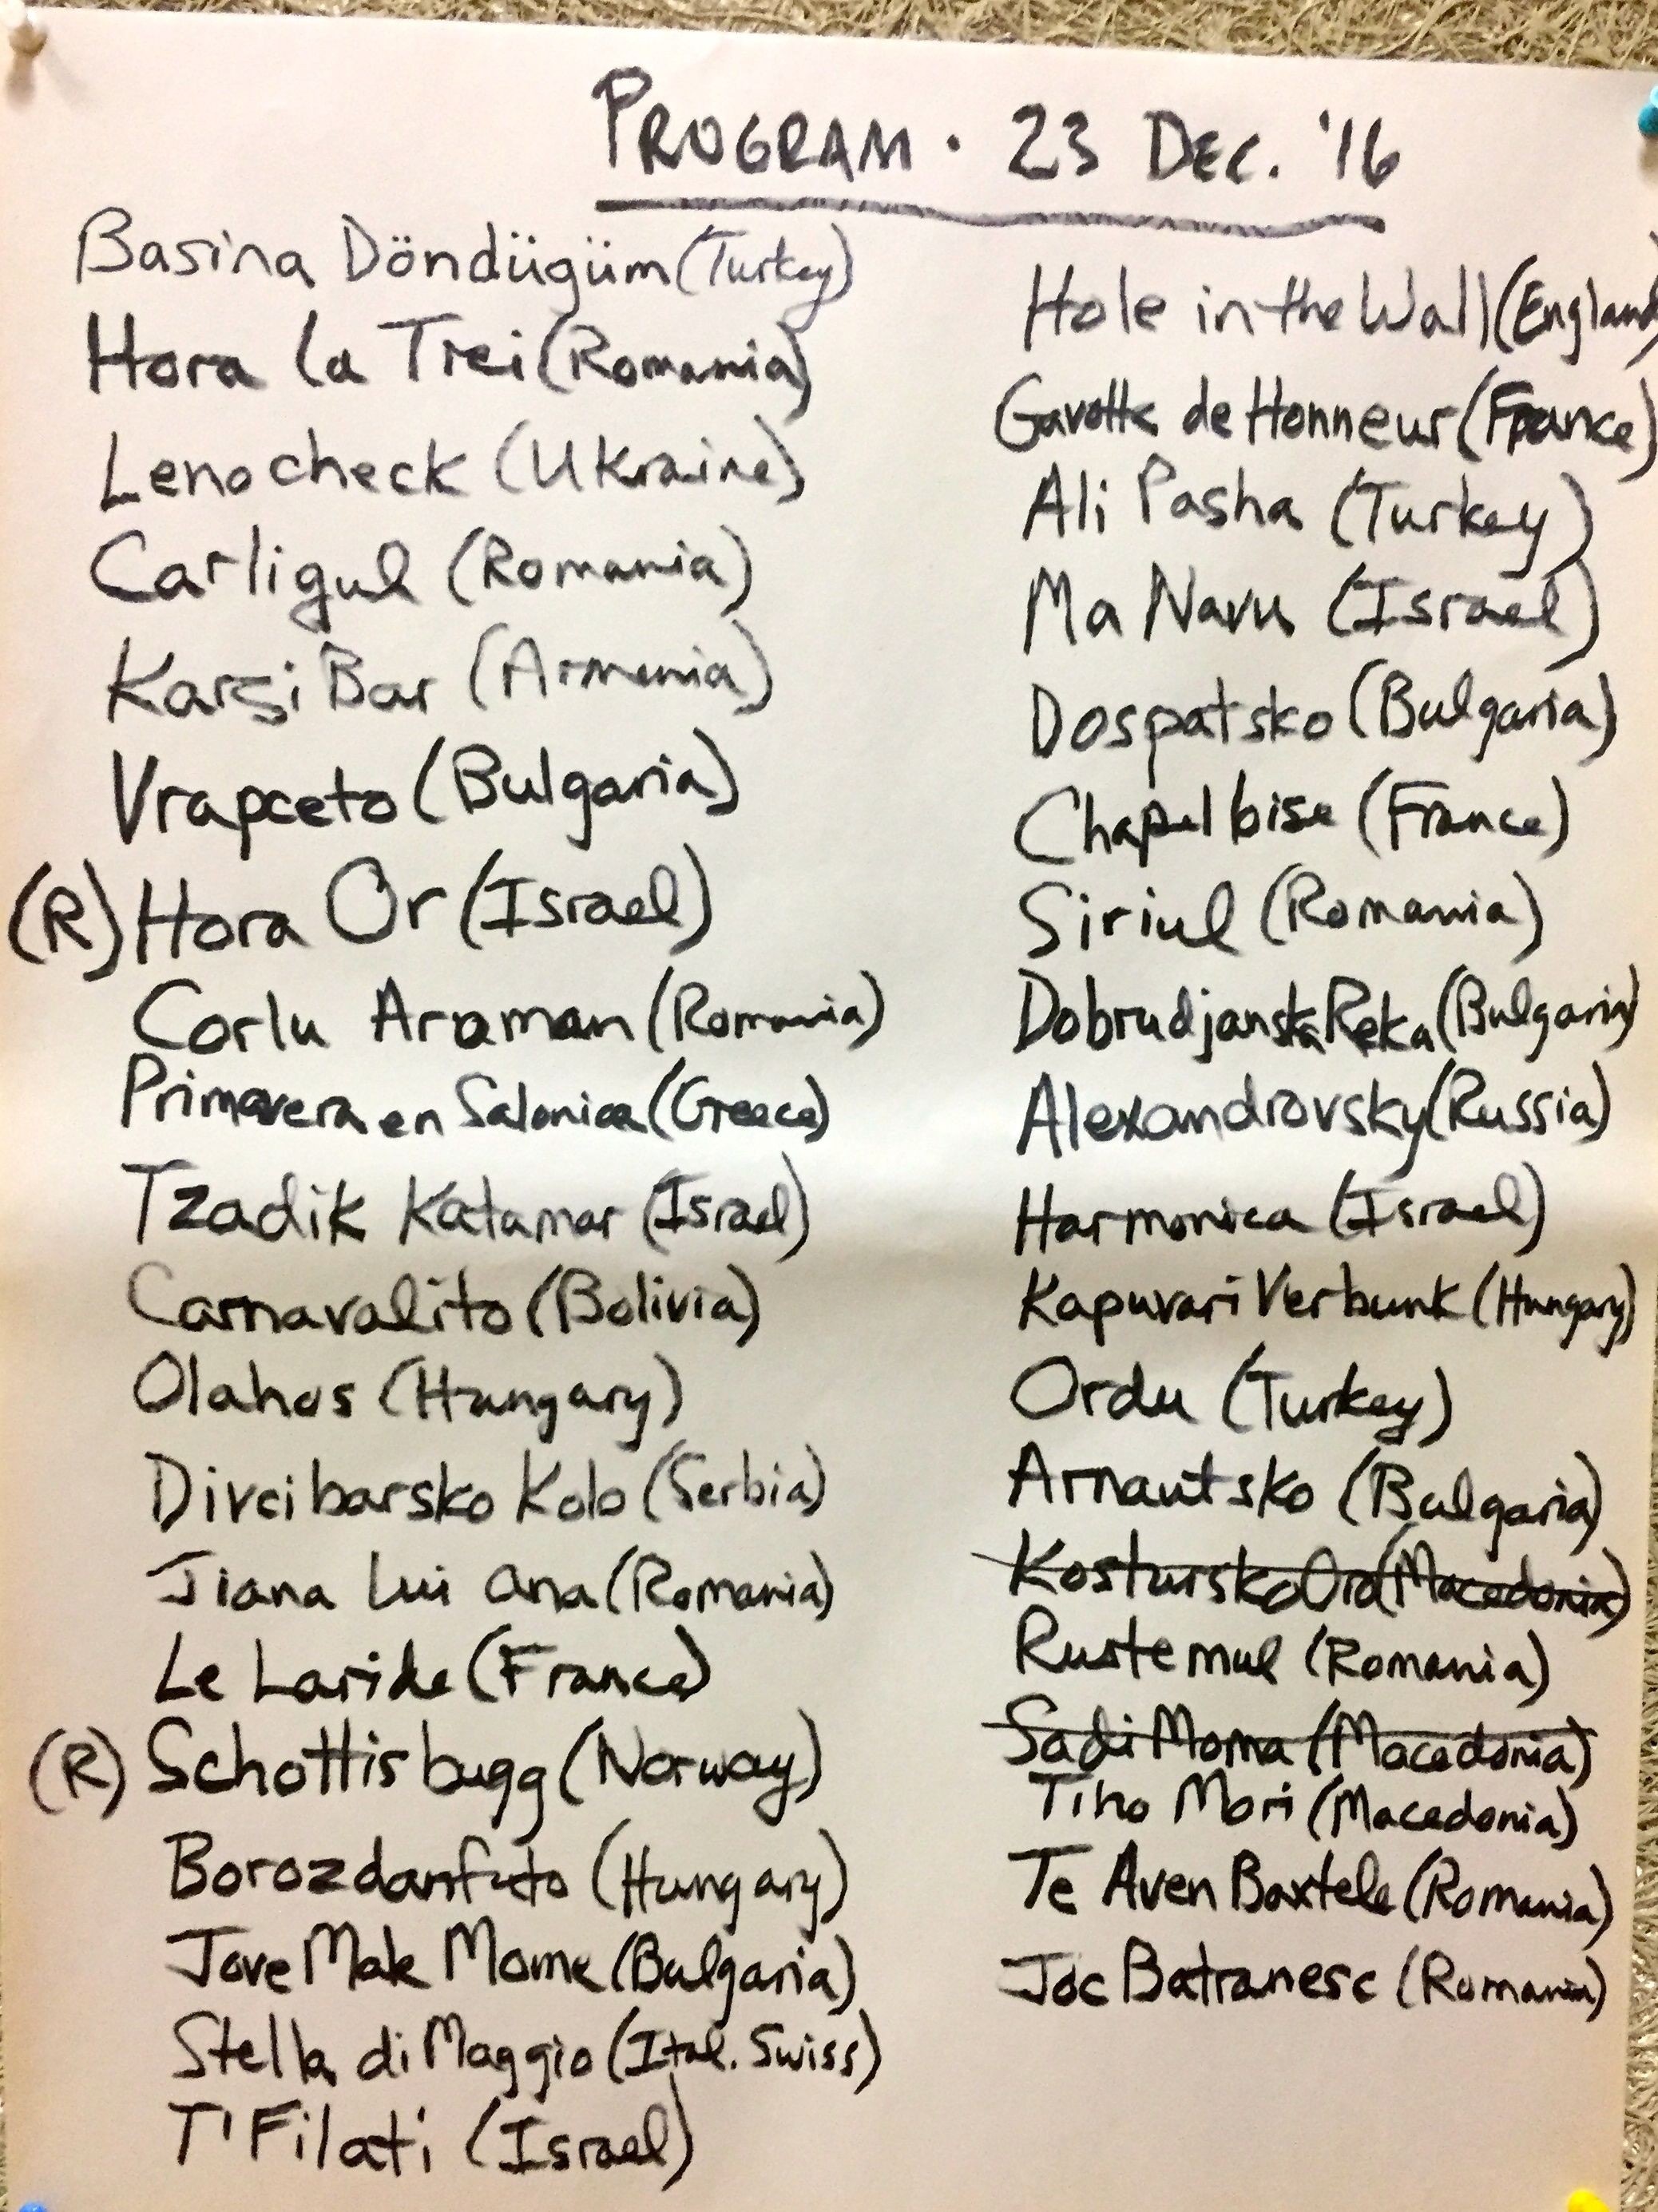 PROGRAM · 23 DEC. '16
Basina Döndügüm (Turkey)
Hora la Trei (Romania)
Lenocheck (Ukraine)
Carligul (Romania)
Karşi Bar (Armenia)
Vrapceto (Bulgaria)
(R) Hora Or (Israel)
Corlu Araman (Romania)
Primavera en Salonica (Greece)
Tzadik Katamar (Israel)
Carnavalito (Bolivia)
Olahos (Hungary)
Divcibarsko Kolo (Serbia)
Jiana Lui Ana (Romania)
Le Laride (France)
(R) Schottis bugg (Norway)
Borozdanfuto (Hungary)
Jove Male Mome (Bulgaria)
Stella di Maggio (Ital. Swiss)
T'Filati (Israel)
Hole in the Wall (England)
Gavotte de Honneur (France)
Ali Pasha (Turkey)
Ma Navu (Israel)
Dospatsko (Bulgaria)
Chapelloise (France)
Siriul (Romania)
Dobrudjanska Reka (Bulgaria)
Alexandrovsky (Russia)
Harmonica (Israel)
Kapuvari Verbunk (Hungary)
Ordu (Turkey)
Arnautsko (Bulgaria)
Kostursko Oro (Macedonia)
Rustemul (Romania)
Sadi Moma (Macedonia)
Tino Mori (Macedonia)
Te Aven Baxtele (Romania)
Joc Batranesc (Romania)